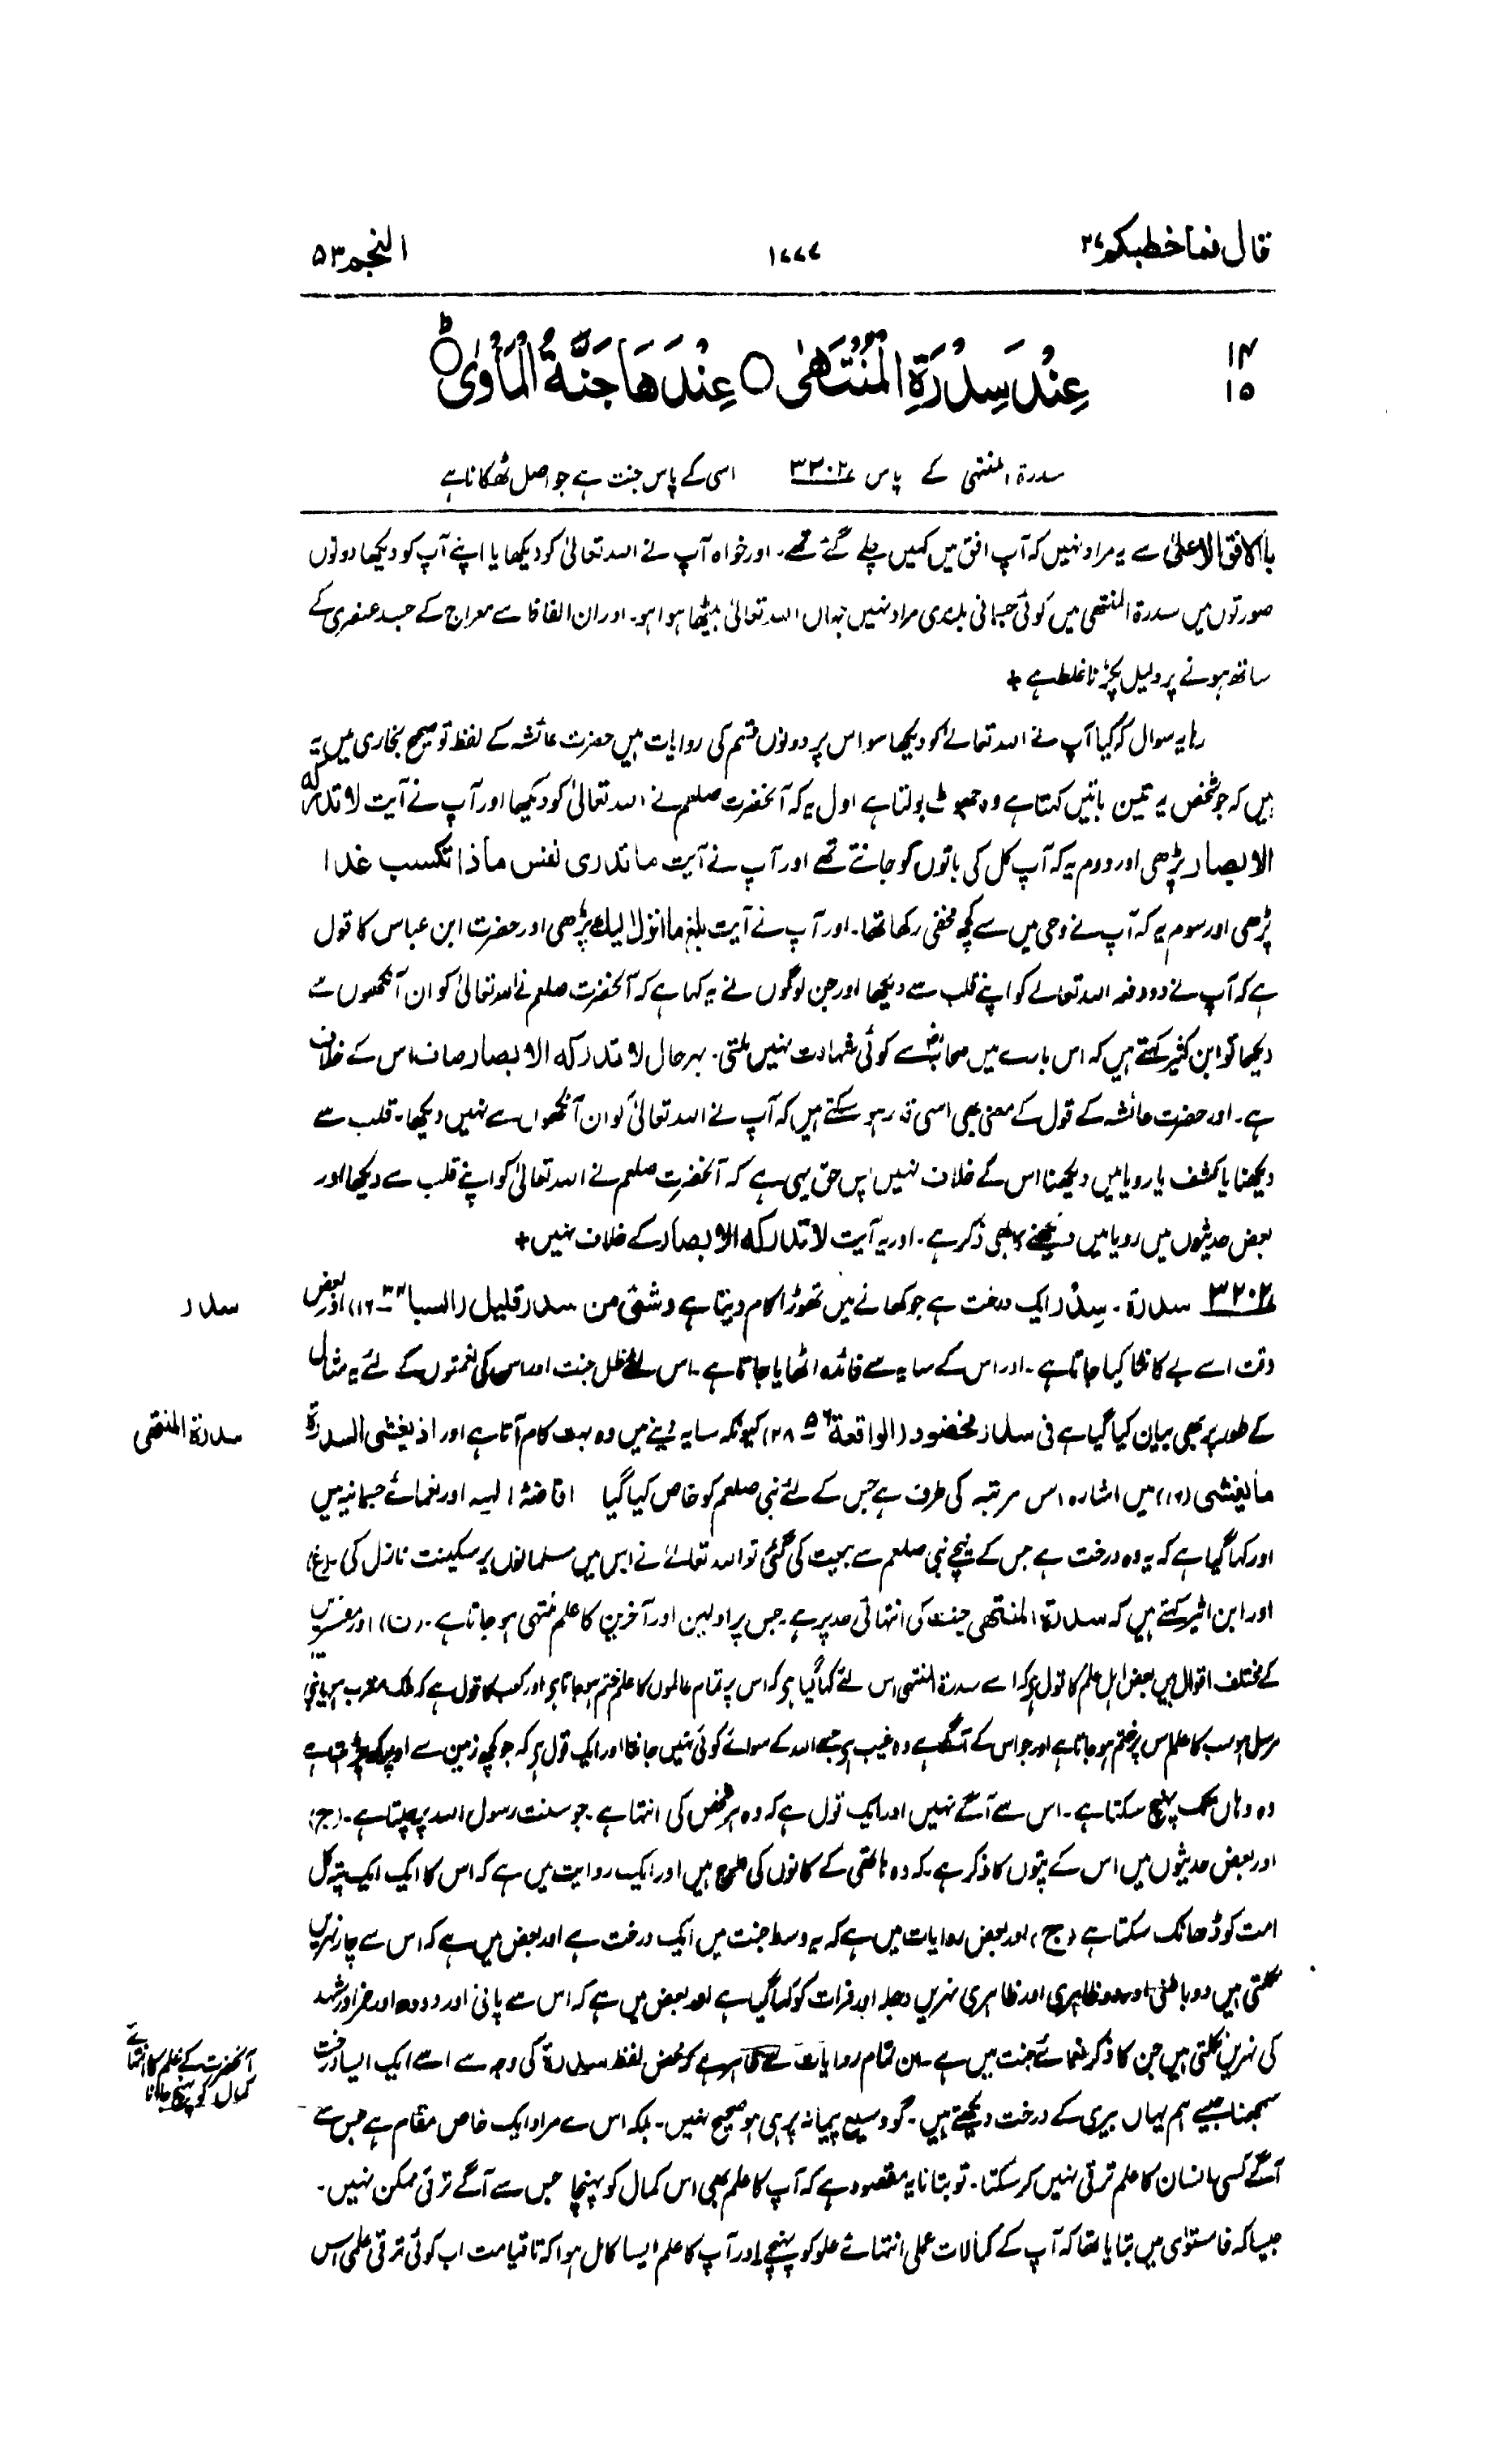 قال فما خطبكم ۲۷
۱۷۷۷
النجم ۵۳
۱۴
عِنْدَ سِدْرَةِ الْمُنْتَهٰى ○ عِنْدَهَا جَنَّةُ الْمَأْوٰى ○ؕ
۱۵
سدرۃ المنتہیٰ کے پاس ۳۲۰۲ اسی کے پاس جنت ہے جو اصل ٹھکانا ہے
بالافق الاعلیٰ سے یہ مراد نہیں کہ آپ افق میں کہیں چلے گئے تھے۔ اور خواہ آپ نے اللہ تعالیٰ کو دیکھا یا اپنے آپ کو دیکھا دونوں
صورتوں میں سدرۃ المنتھی میں کوئی جسمانی بلندی مراد نہیں جہاں اللہ تعالیٰ بیٹھا ہوا ہو۔ اور ان الفاظ سے معراج کے جسد عنصری کے
ساتھ ہونے پر دلیل پکڑنا غلط ہے +
رہا یہ سوال کہ کیا آپ نے اللہ تعالےٰ کو دیکھا سو اس پر دونوں قسم کی روایات ہیں حضرت عائشہ کے لفظ تو صحیح بخاری میں یہ
ہیں کہ جو شخص یہ تین باتیں کہتا ہے وہ جھوٹ بولتا ہے اول یہ کہ آنحضرت صلعم نے اللہ تعالیٰ کو دیکھا اور آپ نے آیت لا تدرکه
الابصار پڑھی اور دوم یہ کہ آپ کل کی باتوں کو جانتے تھے اور آپ نے آیت ما تدری نفس ماذا تکسب غدا
پڑھی اور سوم یہ کہ آپ نے وحی میں سے کچھ مخفی رکھا تھا۔ اور آپ نے آیت بلغ ما انزل الیك پڑھی اور حضرت ابن عباس کا قول
ہے کہ آپ نے دو دفعہ اللہ تعالےٰ کو اپنے قلب سے دیکھا اور جن لوگوں نے یہ کہا ہے کہ آنحضرت صلعم نے اللہ تعالیٰ کو ان آنکھوں سے
دیکھا تو ابن کثیر کہتے ہیں کہ اس بارے میں صحابہؓ سے کوئی شہادت نہیں ملتی۔ بہرحال لا تدرکه الابصار صاف اس کے خلاف
ہے۔ اور حضرت عائشہ کے قول کے معنی بھی اسی قدر ہو سکتے ہیں کہ آپ نے اللہ تعالیٰ کو ان آنکھوں سے نہیں دیکھا۔ قلب سے
دیکھنا یا کشف یا رویا میں دیکھنا اس کے خلاف نہیں پس حق یہی ہے کہ آنحضرت صلعم نے اللہ تعالیٰ کو اپنے قلب سے دیکھا اور
بعض حدیثوں میں رویا میں دیکھنے کا بھی ذکر ہے۔ اور یہ آیت لا تدرکه الابصار کے خلاف نہیں +
۳۲۰۲ سدرة۔ سِدْر ایک درخت ہے جو کھانے میں تھوڑا کام دیتا ہے وشئ من سدر قلیل (السبا ۳۴-۱۶) اور بعض
سدر
وقت اسے بے کانٹا کیا جاتا ہے۔ اور اس کے سایہ سے فائدہ اٹھایا جاتا ہے۔ اس لئے ظل جنت اور اس کی نعمتوں کے لئے یہ مثال
کے طور پر بھی بیان کیا گیا ہے فی سدر مخضود (الواقعة ۵۶-۲۸) کیونکہ سایہ دینے میں وہ بہت کام آتا ہے اور اذ یغشی السدرة
سدرة المنتھی
ما یغشی (۱۶) میں اشارہ اس مرتبہ کی طرف ہے جس کے لئے نبی صلعم کو خاص کیا گیا افاضۂ الٰہیہ اور نعمائے جسمانیہ میں
اور کہا گیا ہے کہ یہ وہ درخت ہے جس کے نیچے نبی صلعم سے بیعت کی گئی تو اللہ تعالےٰ نے اس میں مسلمانوں پر سکینت نازل کی۔ (غ)
اور ابن اثیر کہتے ہیں کہ سدرة المنتھی جنت کی انتہائی حد پر ہے۔ جس پر اولین اور آخرین کا علم منتہی ہو جاتا ہے۔ (ن) اور مفسرین
کے مختلف اقوال ہیں بعض اہل علم کا قول ہے کہ اسے سدرۃ المنتہی اس لئے کہا گیا ہے کہ اس پر تمام عالموں کا علم ختم ہو جاتا ہے اور کعب کا قول ہے کہ ملک مقرب ہو یا نبی
مرسل ہو سب کا علم اس پر ختم ہو جاتا ہے اور جو اس کے آگے ہے وہ غیب ہے جسے اللہ کے سوائے کوئی نہیں جانتا اور ایک قول ہے کہ جو کچھ زمین سے اوپر کو چڑھتا ہے
وہ وہاں تک پہنچ سکتا ہے۔ اس سے آگے نہیں اور ایک قول ہے کہ وہ ہر شخص کی انتہا ہے۔ جو سنت رسول اللہ پر چلتا ہے۔ (ج)
اور بعض حدیثوں میں اس کے پتوں کا ذکر ہے۔ کہ وہ ہاتھی کے کانوں کی طرح ہیں اور ایک روایت میں ہے کہ اس کا ایک ایک پتہ کل
امت کو ڈھانک سکتا ہے (ج) اور بعض روایات میں ہے کہ یہ وسط جنت میں ایک درخت ہے اور بعض میں ہے کہ اس سے چار نہریں
نکلتی ہیں دو باطنی اور دو ظاہری اور ظاہری نہریں دجلہ اور فرات کو کہا گیا ہے اور بعض میں ہے کہ اس سے پانی اور دودھ اور خمر اور شہد
کی نہریں نکلتی ہیں جن کا ذکر نعمائے جنت میں ہے۔ ان تمام روایات سے ظاہر ہے کہ محض لفظ سدرة کی وجہ سے اسے ایک ایسا درخت
آنحضرت کے علم کا انتہائے
کمال کو پہنچ جانا
سمجھنا جیسے ہم یہاں بیری کے درخت دیکھتے ہیں۔ گو وسیع پیمانہ پر ہی ہو صحیح نہیں۔ بلکہ اس سے مراد ایک خاص مقام ہے جس سے
آگے کسی انسان کا علم ترقی نہیں کر سکتا۔ تو بتانا یہ مقصود ہے کہ آپ کا علم بھی اس کمال کو پہنچا جس سے آگے ترقی ممکن نہیں۔
جیسا کہ فاستوٰی میں بتایا تھا کہ آپ کے کمالات عملی انتہائے علو کو پہنچے اور آپ کا علم ایسا کامل ہوا کہ تا قیامت اب کوئی ترقی علمی اس